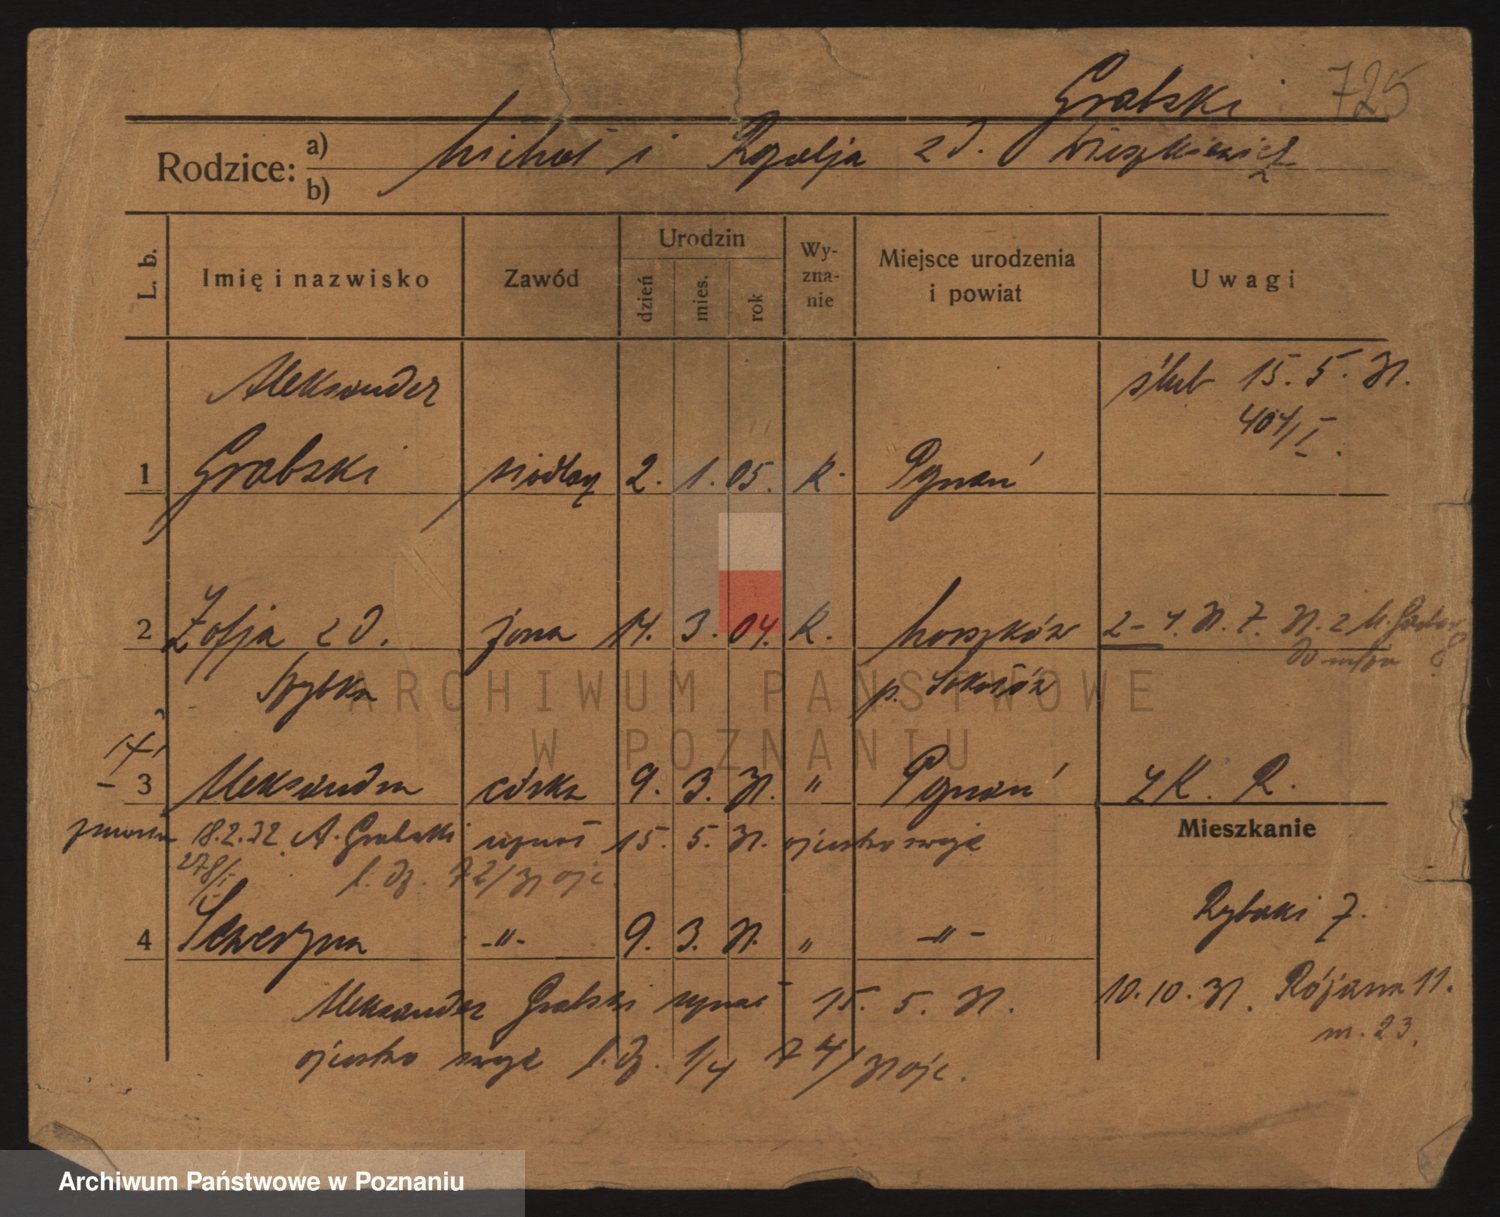 Grabski 725
Rodzice: a) Michał i Rozalja z d.
b)
L. b.
Imię i nazwisko
Zawód
Urodzin
dzień
mies.
rok
Wy-
zna-
nie
Miejsce urodzenia
i powiat
Uwagi
Aleksander ślub 15. 5. 31.
404/I.
1 Grabski siodlarz 2. 1. 05. k. Poznań
2 Zofja z d. żona 14. 3. 04. k.
Szybka p.
3 Aleksandra córka 9. 3. 31. " Poznań
Mieszkanie
18.2.32 A. Grabski uznał 15. 5. 31. ojcostwo swoje
278/I l. dz. 72/31 ojc.
Rybaki 7.
4 Seweryna -"- 9. 3. 31. " -"-
Aleksander Grabski uznał 15. 5. 31. 10.10.31. Różana 11.
m. 23.
ojcostwo swoje l. dz. 1/4 74/31 ojc.
ARCHIWUM PAŃSTWOWE
W POZNANIU
Archiwum Państwowe w Poznaniu